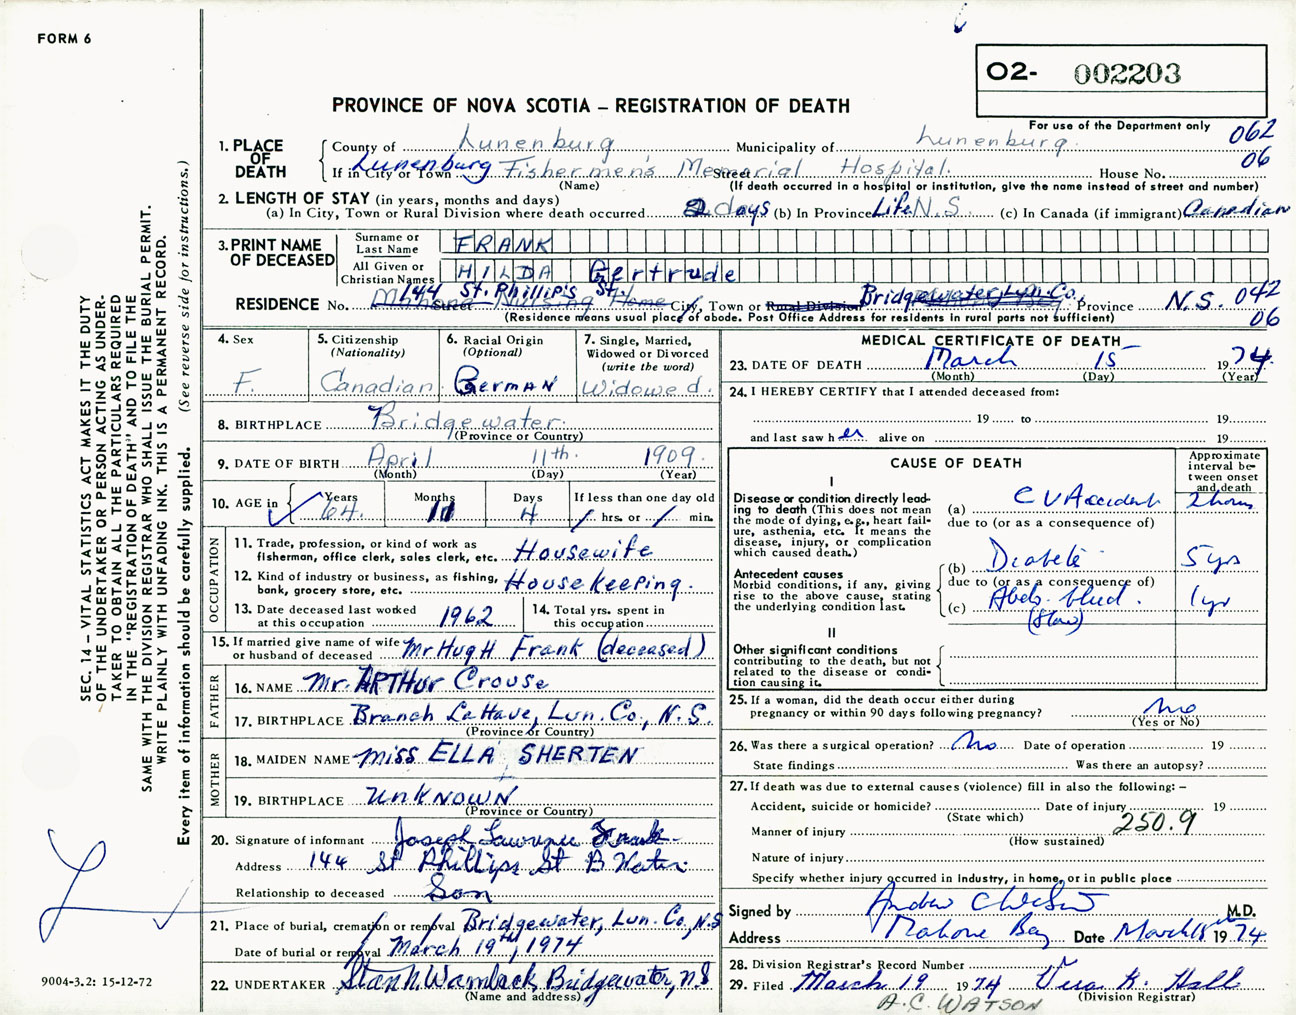 FORM 6
O2- 002203
PROVINCE OF NOVA SCOTIA – REGISTRATION OF DEATH
For use of the Department only
062
06
1. PLACE OF DEATH
County of Lunenburg Municipality of Lunenburg
If in City or Town Lunenburg Fishermen's Memorial Hospital. Street House No.
(Name) (If death occurred in a hospital or institution, give the name instead of street and number)
2. LENGTH OF STAY (in years, months and days)
(a) In City, Town or Rural Division where death occurred 2 days (b) In Province Life N.S. (c) In Canada (if immigrant) Canadian
3. PRINT NAME OF DECEASED
Surname or Last Name FRANK
All Given or Christian Names HILDA Gertrude
RESIDENCE No. 144 St. Phillip's St. Street Mahone Nursing Home City, Town or Rural Division Bridgewater, Lun. Co., Province N.S. 042
(Residence means usual place of abode. Post Office Address for residents in rural parts not sufficient) 06
4. Sex
F.
5. Citizenship
(Nationality)
Canadian
6. Racial Origin
(Optional)
German
7. Single, Married,
Widowed or Divorced
(write the word)
Widowed.
8. BIRTHPLACE Bridgewater.
(Province or Country)
9. DATE OF BIRTH April 11th. 1909.
(Month) (Day) (Year)
10. AGE in Years 64. Months 11 Days 4 If less than one day old
/ hrs. or / min.
OCCUPATION
11. Trade, profession, or kind of work as
fisherman, office clerk, sales clerk, etc. Housewife
12. Kind of industry or business, as fishing,
bank, grocery store, etc. Housekeeping.
13. Date deceased last worked
at this occupation 1962
14. Total yrs. spent in
this occupation
15. If married give name of wife
or husband of deceased Mr Hugh Frank (deceased)
FATHER
16. NAME Mr. ARTHur Crouse
17. BIRTHPLACE Branch LaHave, Lun. Co., N.S.
(Province or Country)
MOTHER
18. MAIDEN NAME Miss ELLA SHERTEN
19. BIRTHPLACE UNKNOWN
(Province or Country)
20. Signature of informant Joseph Lawrence Frank
Address 144 St Phillips St B Water
Relationship to deceased Son
21. Place of burial, cremation or removal Bridgewater, Lun. Co., N.S
Date of burial or removal March 19th, 1974
22. UNDERTAKER Bridgewater, N.S
(Name and address)
MEDICAL CERTIFICATE OF DEATH
23. DATE OF DEATH March 15 1974.
(Month) (Day) (Year)
24. I HEREBY CERTIFY that I attended deceased from:
19 to 19
and last saw her alive on 19
CAUSE OF DEATH
Approximate
interval be-
tween onset
and death
I
Disease or condition directly lead-
ing to death (This does not mean
the mode of dying, e.g., heart fail-
ure, asthenia, etc. It means the
disease, injury, or complication
which caused death.)
(a) C V Accident 2 hours
due to (or as a consequence of)
(b) Diabetic 5 yrs
due to (or as a consequence of)
(c) 1 yr
Antecedent causes
Morbid conditions, if any, giving
rise to the above cause, stating
the underlying condition last.
II
Other significant conditions
contributing to the death, but not
related to the disease or condi-
tion causing it.
25. If a woman, did the death occur either during
pregnancy or within 90 days following pregnancy? no
(Yes or No)
26. Was there a surgical operation? No Date of operation 19
State findings Was there an autopsy?
27. If death was due to external causes (violence) fill in also the following: –
Accident, suicide or homicide? Date of injury 19
(State which)
Manner of injury 250.9
(How sustained)
Nature of injury
Specify whether injury occurred in Industry, in home, or in public place
Signed by Andrew C Watson M.D.
Address Mahone Bay Date March 18th 1974
28. Division Registrar's Record Number
29. Filed March 19 1974 Vera K. Hall
(Division Registrar)
A.C. WATSON
SEC. 14 – VITAL STATISTICS ACT MAKES IT THE DUTY
OF THE UNDERTAKER OR PERSON ACTING AS UNDER-
TAKER TO OBTAIN ALL THE PARTICULARS REQUIRED
IN THE "REGISTRATION OF DEATH" AND TO FILE THE
SAME WITH THE DIVISION REGISTRAR WHO SHALL ISSUE THE BURIAL PERMIT.
WRITE PLAINLY WITH UNFADING INK. THIS IS A PERMANENT RECORD.
Every item of information should be carefully supplied. (See reverse side for instructions.)
9004-3.2: 15-12-72